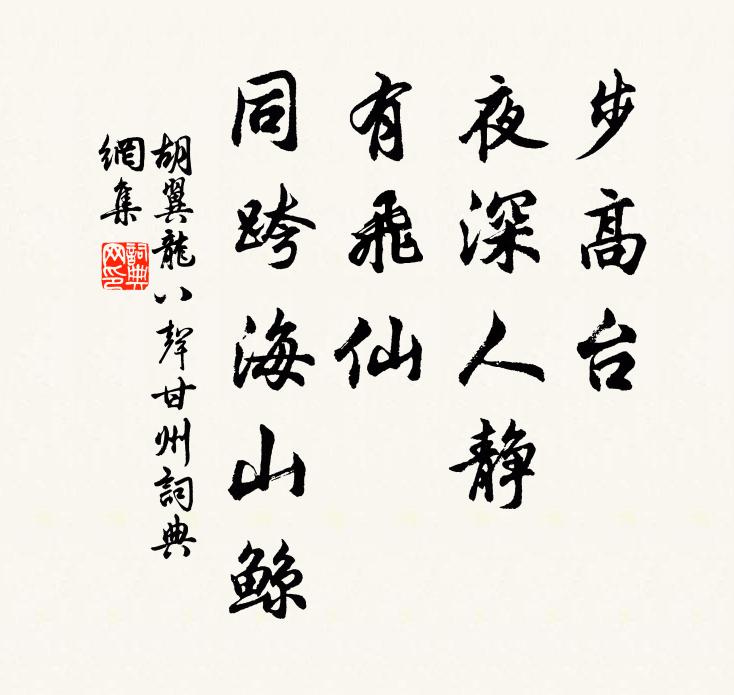 步高台
夜深人静
有飛仙
同跨海山鲸
胡翼龍八聲甘州詞典
網集
詞典
网印